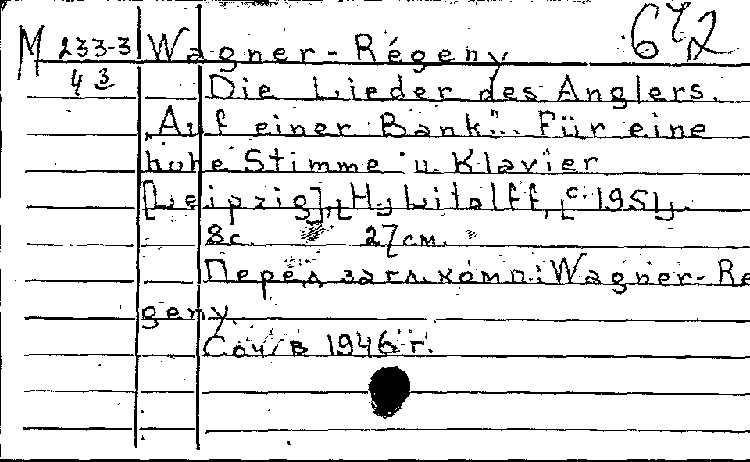 672
M 233-3 Wagner-Régeny
43 Die Lieder des Anglers.
"Auf einer Bank". Für eine
hohe Stimme u. Klavier
[Leipzig], H. Litolff, [c. 195].
8 с. 27 см.
Перед загл. комп.: Wagner-Re
geny.
Соч. в 1946 г.